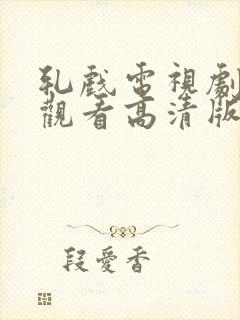 乳戲電視劇
觀看高清版
段愛香